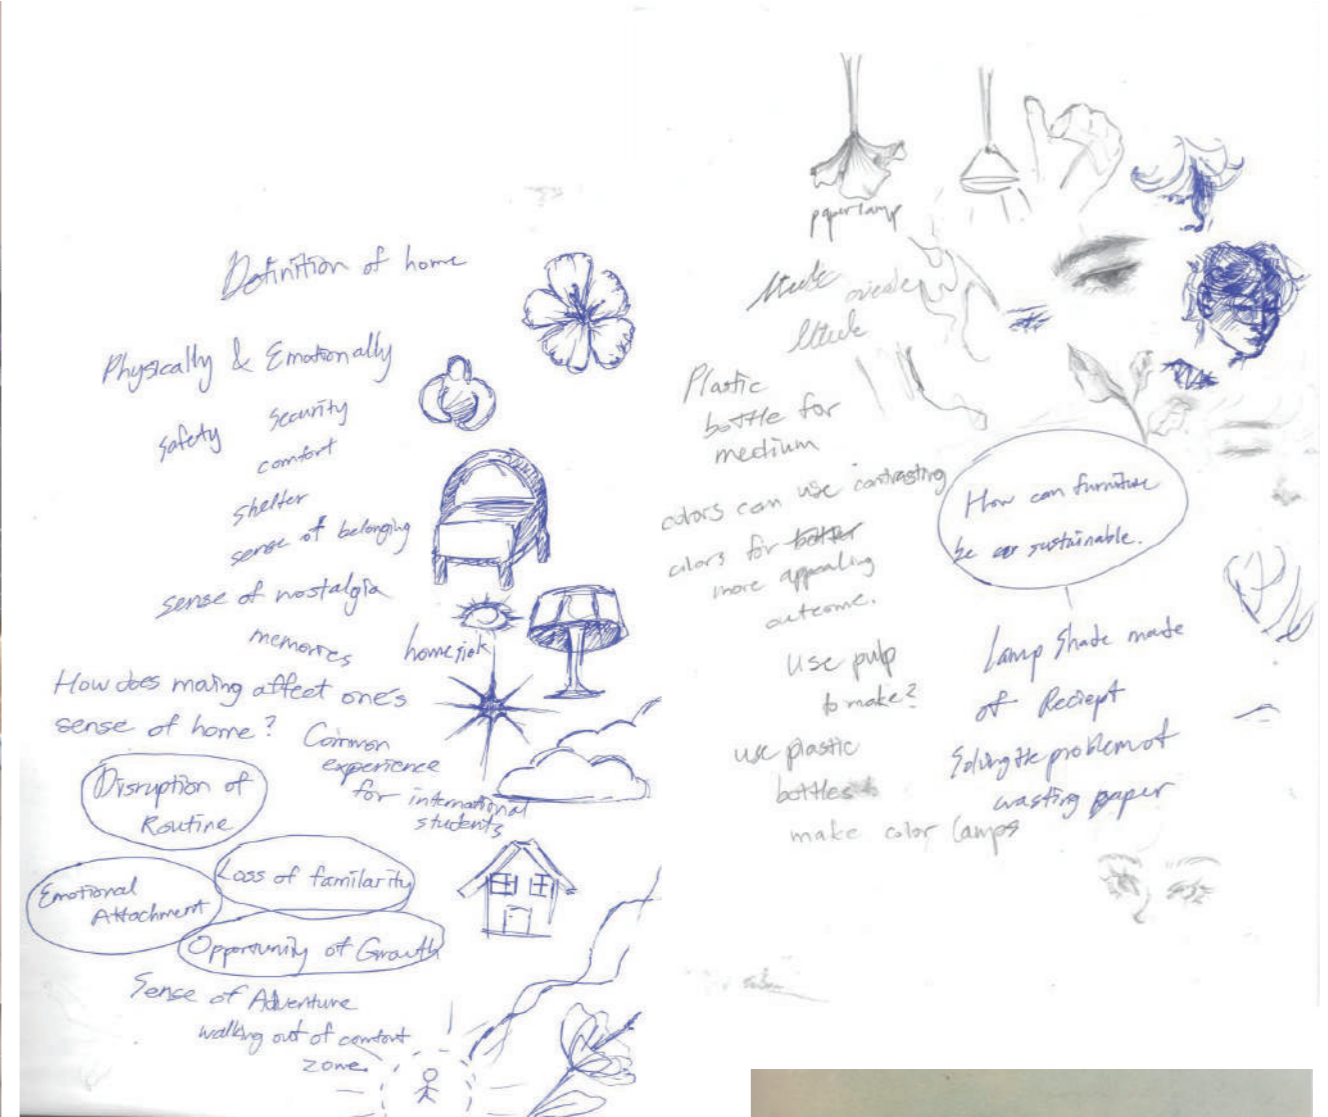 Definition of home
Physically & Emotionally
safety security
comfort
shelter
sense of belonging
sense of nostalgia
memories homesick
How does moving affect one's
sense of home? Common
experience
for international
students
Disruption of
Routine
Loss of familarity
Emotional
Attachment
Opportunity of Growth
Sense of Adventure
walking out of comfort
zone.
paper lamp
Plastic
bottle for
medium
colors can use contrasting
colors for better
more appealing
outcome.
Use pulp
to make?
use plastic
bottles
make color lamps
How can furniture
be sustainable.
Lamp shade made
of Reciept
Solving the problem of
wasting paper